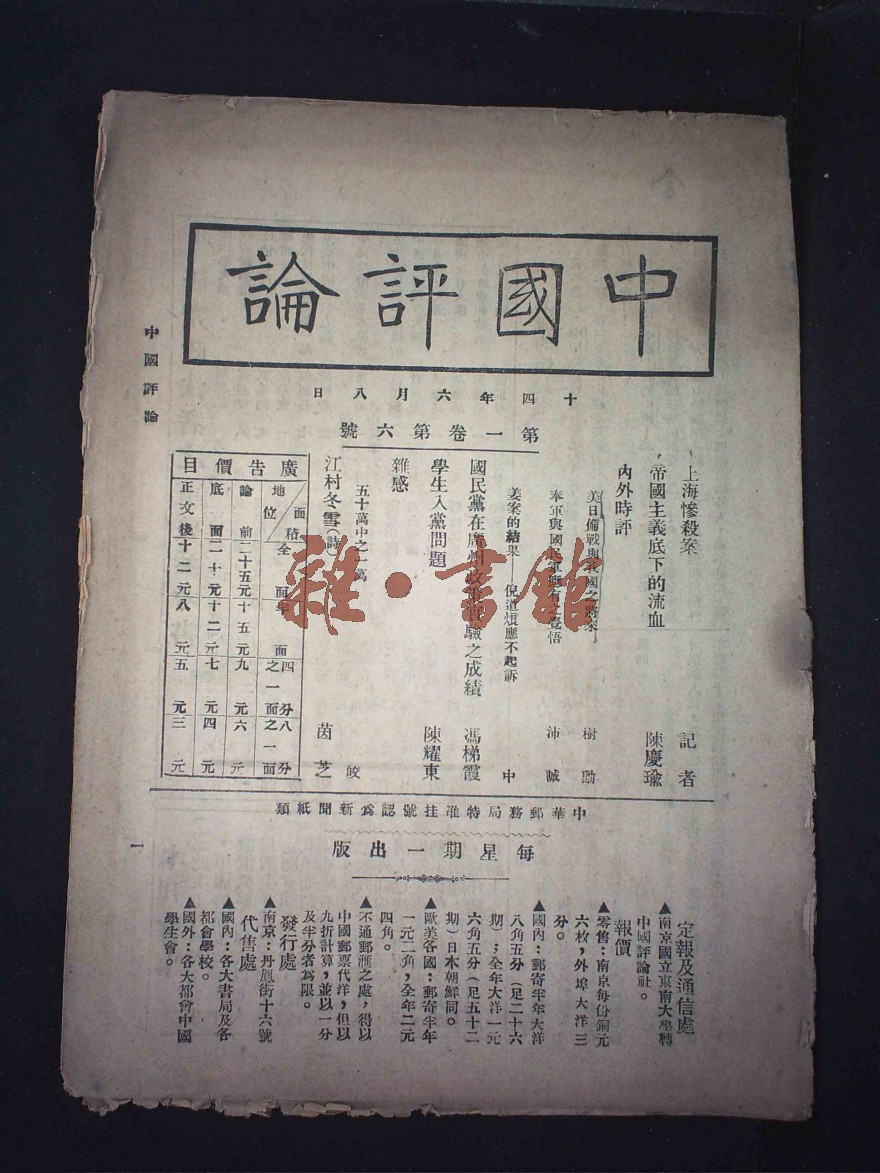 中國評論
十四年六月八日
第一卷第六號
上海慘殺案 記者
帝國主義底下的流血 陳慶瑜
內外時評
美日備戰與我國之將來 樹勛
奉軍與國民軍應有之覺悟 沛誠
姜案的結果——倪道烺應不起訴 中
國民黨在廣州政策實驗之成績 馮梯霞
學生入黨問題 陳耀東
雜感
五十萬中之一萬 皎
江村冬雪(詩) 茵芝
廣告價目
面積 地位 全面 半面 四分之一面 八分之一面
論前 二十五元 十五元 九元 六元
底面 二十元 十二元 七元 四元
正文後 十二元 八元 五元 三元
中國評論
中華郵務局特准挂號認爲新聞紙類
每星期一出版
定報及通信處
▲南京國立東南大學轉
中國評論社。
報價
▲零售:南京每份銅元
六枚,外埠大洋三
分。
▲國內:郵寄半年大洋
八角五分(足二十六
期);全年大洋一元
六角五分(足五十二
期)日本朝鮮同。
▲歐美各國:郵寄半年
一元二角,全年二元
四角。
▲不通郵滙之處,得以
中國郵票代洋,但以
九折計算,並以一分
及半分者爲限。
發行處
▲南京:丹鳳街十六號
代售處
▲國內:各大書局及各
都會學校。
▲國外:各大都會中國
學生會。
一
雜·書館